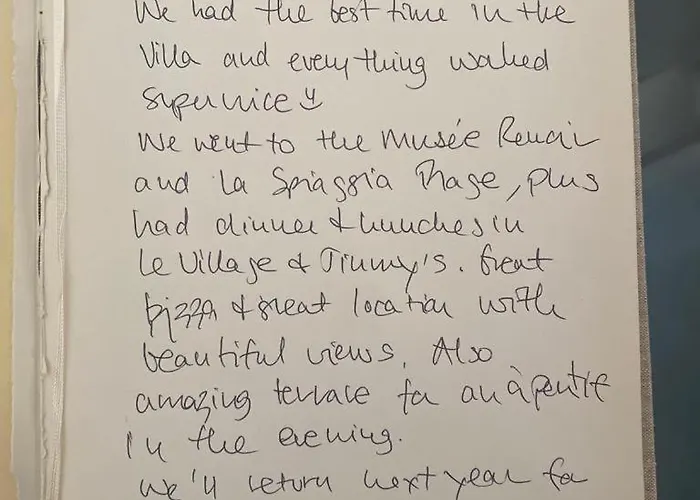 We had the best time in the
Villa and everything walked
supernice
We went to the Musée Renoir
and la Spiaggia Plage, plus
had dinner & lunches in
Le Village & Jimmy's. Great
pizza & great location with
beautiful views. Also
amazing terrace for an àperitif
in the evening.
We'll return next year for